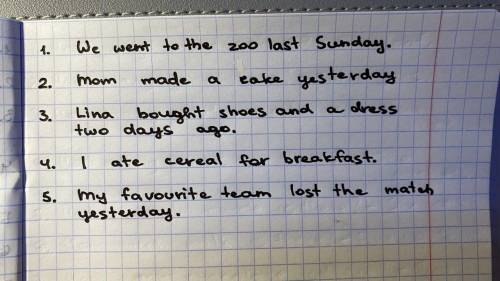 1. We went to the zoo last Sunday.
2. Mom made a cake yesterday
3. Lina bought shoes and a dress
two days ago.
4. I ate cereal for breakfast.
5. My favourite team lost the match
yesterday.